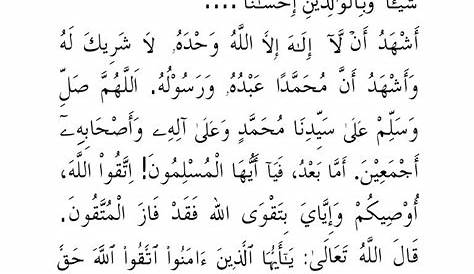 شَيْئًا وَبِالْوَالِدَيْنِ إِحْسَانًا ....
أَشْهَدُ أَنْ لَّآ إِلَـٰهَ إِلاَّ اللَّهُ وَحْدَهُ، لاَ شَرِيكَ لَهُ
وَأَشْهَدُ أَنَّ مُحَمَّدًا عَبْدُهُ، وَرَسُولُهُ. اَللَّهُمَّ صَلِّ
وَسَلِّمْ عَلَىٰ سَيِّدِنَا مُحَمَّدٍ وَعَلَىٰ آلِهِۦ وَأَصْحَابِهِۦٓ
أَجْمَعِينَ. أَمَّا بَعْدُ، فَيَآ أَيُّهَا الْمُسْلِمُونَ! اِتَّقُوا۟ اللَّهَ،
أُوصِيكُمْ وَإِيَّايَ بِتَقْوَى الله فَقَدْ فَازَ الْمُتَّقُونَ.
قَالَ اللَّهُ تَعَالَىٰ: يَـٰٓأَيُّهَا ٱلَّذِينَ ءَامَنُوا۟ ٱتَّقُوا۟ ٱللَّهَ حَقَّ